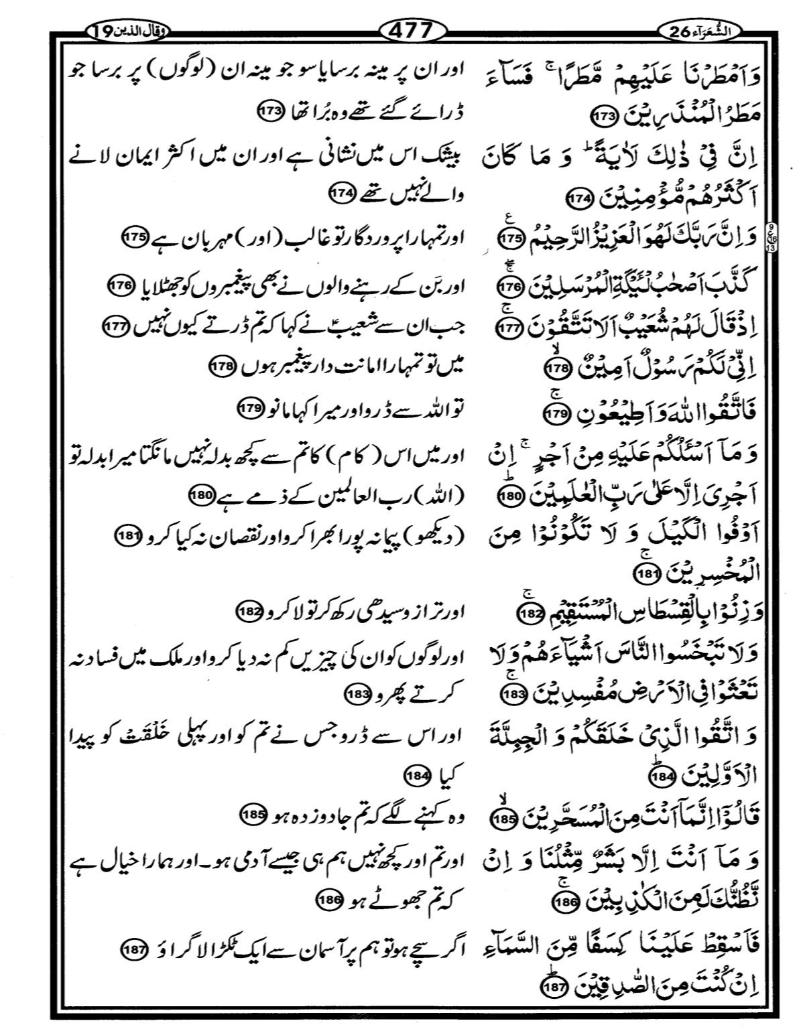 الشُّعَرَآء 26
477
وَقَالَ الَّذِین 19
وَاَمۡطَرۡنَا عَلَیۡهِمۡ مَّطَرًا ۚ فَسَآءَ
مَطَرُ الۡمُنۡذَرِیۡنَ 173
اِنَّ فِیۡ ذٰلِكَ لَاٰیَةً ؕ وَ مَا كَانَ
اَكۡثَرُهُمۡ مُّؤۡمِنِیۡنَ 174
وَاِنَّ رَبَّكَ لَهُوَ الۡعَزِیۡزُ الرَّحِیۡمُ 175
كَذَّبَ اَصۡحٰبُ لۡئَیۡكَةِ الۡمُرۡسَلِیۡنَ 176
اِذۡ قَالَ لَهُمۡ شُعَیۡبٌ اَلَا تَتَّقُوۡنَ 177
اِنِّیۡ لَكُمۡ رَسُوۡلٌ اَمِیۡنٌ 178
فَاتَّقُوا اللّٰهَ وَ اَطِیۡعُوۡنِ 179
وَ مَاۤ اَسۡـَٔلُكُمۡ عَلَیۡهِ مِنۡ اَجۡرٍ ۚ اِنۡ
اَجۡرِیَ اِلَّا عَلٰی رَبِّ الۡعٰلَمِیۡنَ 180
اَوۡفُوا الۡكَیۡلَ وَ لَا تَكُوۡنُوۡا مِنَ
الۡمُخۡسِرِیۡنَ 181
وَزِنُوۡا بِالۡقِسۡطَاسِ الۡمُسۡتَقِیۡمِ 182
وَلَا تَبۡخَسُوا النَّاسَ اَشۡیَآءَهُمۡ وَلَا
تَعۡثَوۡا فِی الۡاَرۡضِ مُفۡسِدِیۡنَ 183
وَ اتَّقُوا الَّذِیۡ خَلَقَكُمۡ وَ الۡجِبِلَّةَ
الۡاَوَّلِیۡنَ 184
قَالُوۡۤا اِنَّمَاۤ اَنۡتَ مِنَ الۡمُسَحَّرِیۡنَ 185
وَ مَاۤ اَنۡتَ اِلَّا بَشَرٌ مِّثۡلُنَا وَ اِنۡ
نَّظُنُّكَ لَمِنَ الۡكٰذِبِیۡنَ 186
فَاَسۡقِطۡ عَلَیۡنَا كِسَفًا مِّنَ السَّمَآءِ
اِنۡ كُنۡتَ مِنَ الصّٰدِقِیۡنَ 187
اور ان پر مینہ برسایا سو جو مینہ ان (لوگوں) پر برسا جو
ڈرائے گئے تھے وہ بُرا تھا 173
بیشک اس میں نشانی ہے اور ان میں اکثر ایمان لانے
والے نہیں تھے 174
اور تمہارا پروردگار تو غالب (اور) مہربان ہے 175
اور بَن کے رہنے والوں نے بھی پیغمبروں کو جھٹلایا 176
جب ان سے شعیبؑ نے کہا کہ تم ڈرتے کیوں نہیں 177
میں تو تمہارا امانت دار پیغمبر ہوں 178
تو اللہ سے ڈرو اور میرا کہا مانو 179
اور میں اس (کام) کا تم سے کچھ بدلہ نہیں مانگتا میرا بدلہ تو
(اللہ) رب العالمین کے ذمے ہے 180
(دیکھو) پیمانہ پورا بھرا کرو اور نقصان نہ کیا کرو 181
اور ترازو سیدھی رکھ کر تولا کرو 182
اور لوگوں کو ان کی چیزیں کم نہ دیا کرو اور ملک میں فساد نہ
کرتے پھرو 183
اور اس سے ڈرو جس نے تم کو اور پہلی خَلْقَتْ کو پیدا
کیا 184
وہ کہنے لگے کہ تم جادو زدہ ہو 185
اور تم اور کچھ نہیں ہم ہی جیسے آدمی ہو۔ اور ہمارا خیال ہے
کہ تم جھوٹے ہو 186
اگر سچے ہو تو ہم پر آسمان سے ایک ٹکڑا لا گراؤ 187